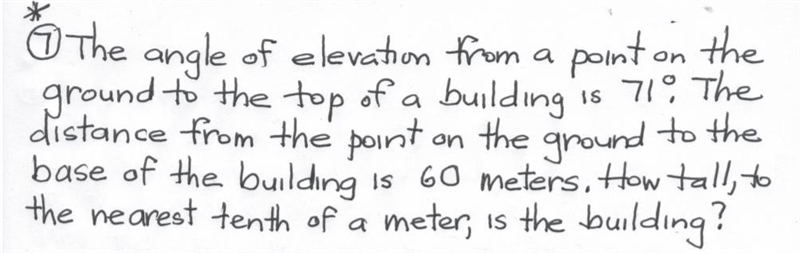 *
⑦ The angle of elevation from a point on the
ground to the top of a building is 71°. The
distance from the point on the ground to the
base of the building is 60 meters. How tall, to
the nearest tenth of a meter, is the building?